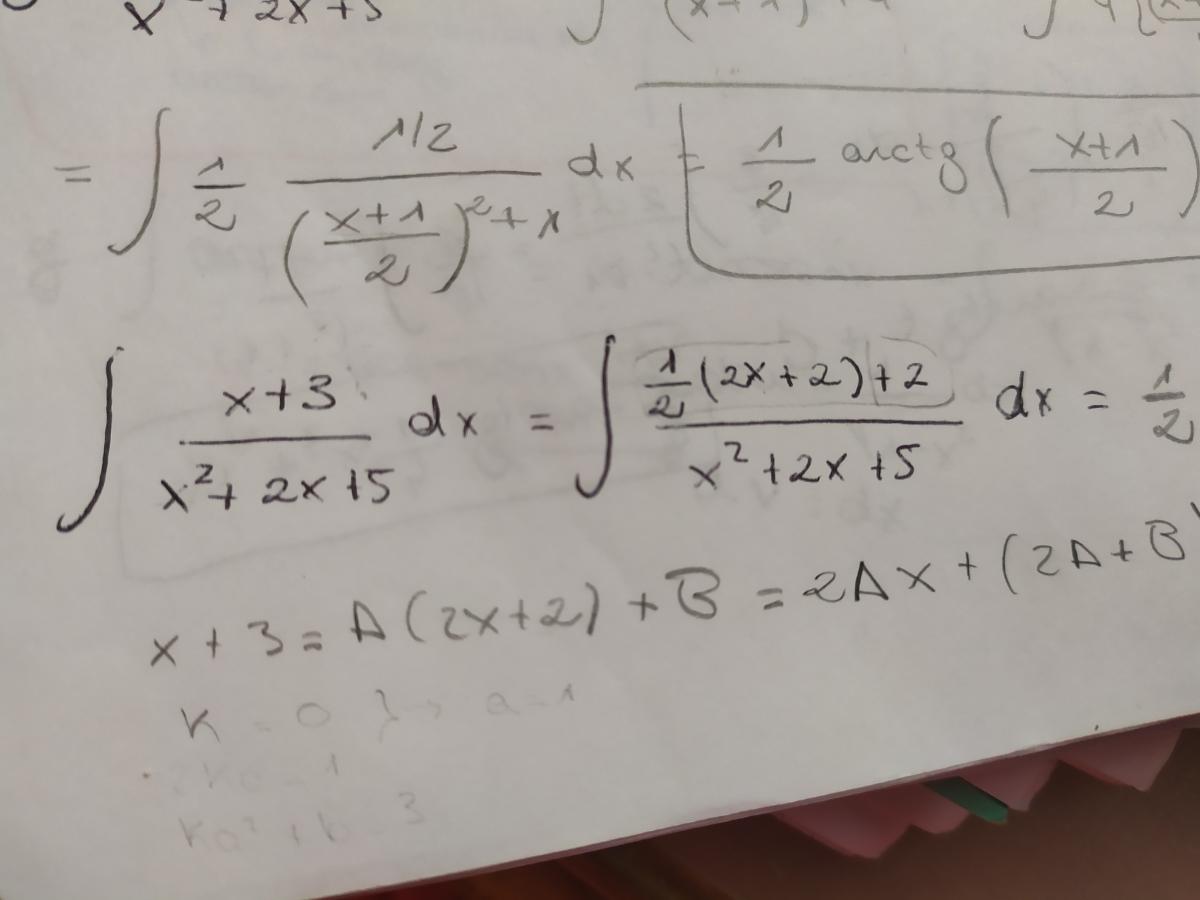 x² + 2x + 5 ∫ ∫
= ∫ 1/2 (1/2)/(((x+1)/2)² + 1) dx = 1/2 arctg((x+1)/2)
∫ (x+3)/(x²+2x+5) dx = ∫ (1/2(2x+2)+2)/(x²+2x+5) dx = 1/2
x + 3 = A(2x+2) + B = 2Ax + (2A + B
K = 0 } → a=1
2Ka = 1
Ka² + b = 3